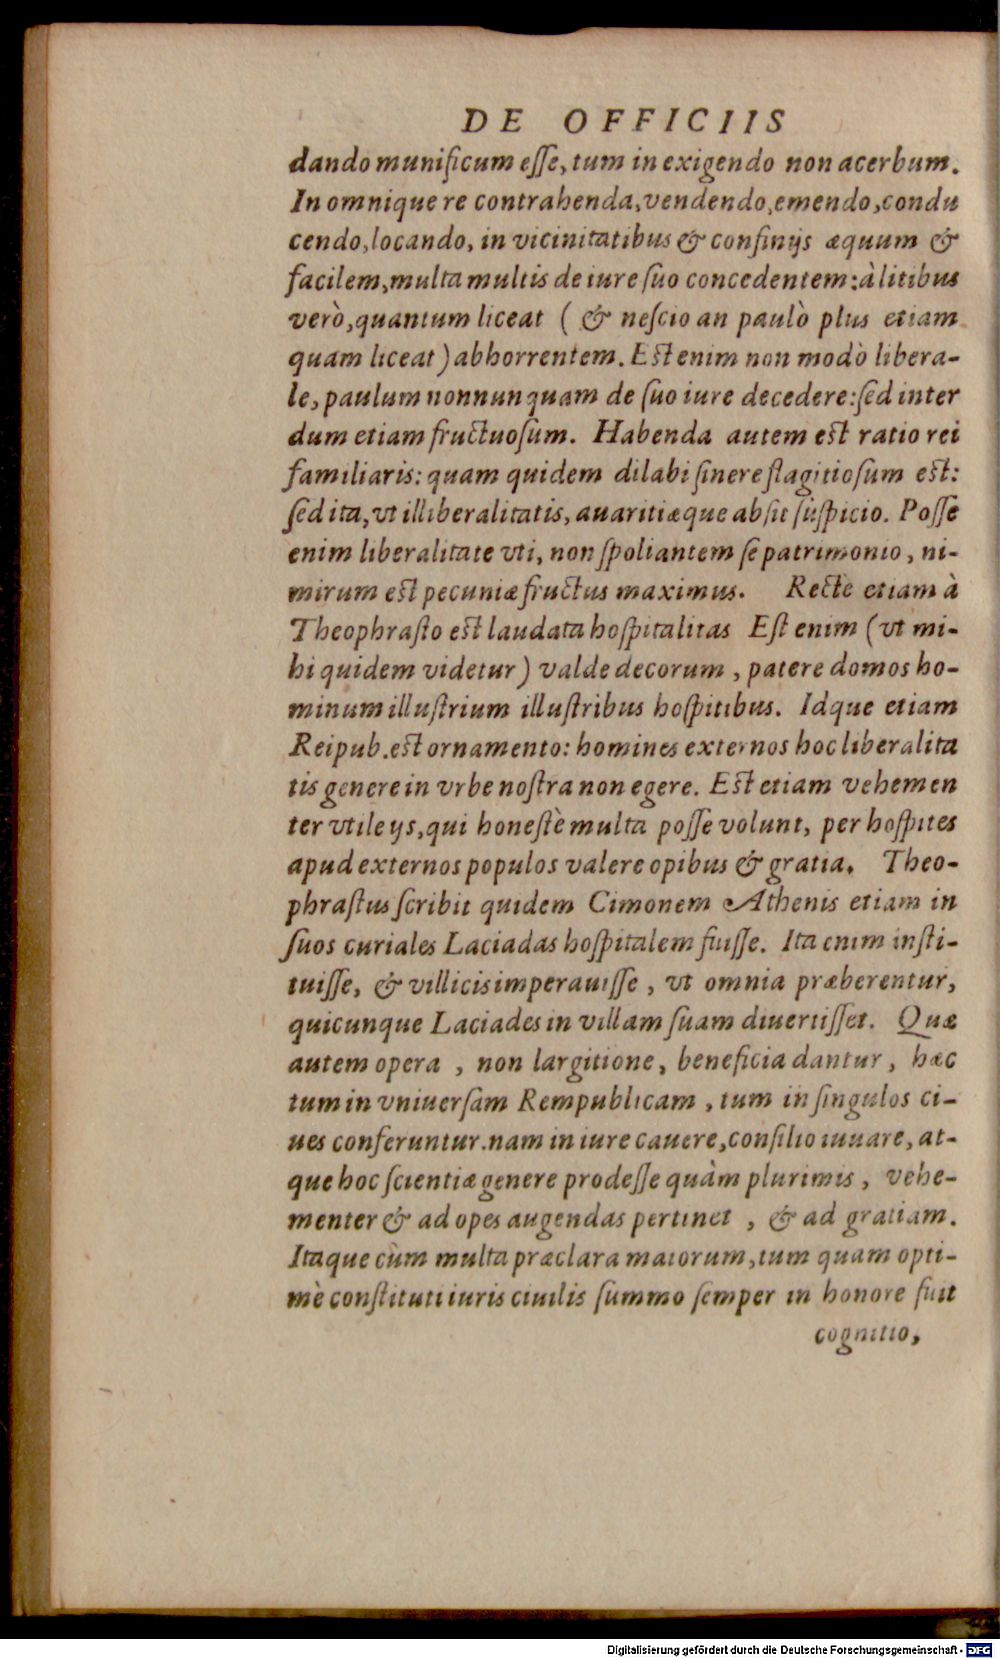 DE OFFICIIS
dando munificum eſſe, tum in exigendo non acerbum.
In omnique re contrahenda, vendendo, emendo, condu
cendo, locando, in vicinitatibus & confinijs æquum &
facilem, multa multis de iure ſuo concedentem: à litibus
verò, quantum liceat ( & neſcio an paulò plus etiam
quam liceat ) abhorrentem. Est enim non modò libera-
le, paulum nonnunquam de ſuo iure decedere: ſed inter
dum etiam fructuoſum. Habenda autem est ratio rei
familiaris: quam quidem dilabi ſinere flagitioſum est:
ſed ita, vt illiberalitatis, auaritiæque abſit ſuſpicio. Poſſe
enim liberalitate vti, non ſpoliantem ſe patrimonio, ni-
mirum est pecuniæ fructus maximus. Rectè etiam à
Theophraſto est laudata hoſpitalitas Eſt enim ( vt mi-
hi quidem videtur ) valde decorum, patere domos ho-
minum illuſtrium illuſtribus hoſpitibus. Idque etiam
Reipub. est ornamento: homines externos hoc liberalita
tis genere in vrbe noſtra non egere. Est etiam vehemen
ter vtile ijs, qui honeſtè multa poſſe volunt, per hoſpites
apud externos populos valere opibus & gratia. Theo-
phraſtus ſcribit quidem Cimonem Athenis etiam in
ſuos curiales Laciadas hoſpitalem fuiſſe. Ita enim inſti-
tuiſſe, & villicis imperauiſſe, vt omnia præberentur,
quicunque Laciades in villam ſuam diuertiſſet. Quæ
autem opera, non largitione, beneficia dantur, hæc
tum in vniuerſam Rempublicam, tum in ſingulos ci-
ues conferuntur. nam in iure cauere, conſilio iuuare, at-
que hoc ſcientiæ genere prodeſſe quàm plurimis, vehe-
menter & ad opes augendas pertinet, & ad gratiam.
Itaque cùm multa præclara maiorum, tum quam opti-
mè conſtituti iuris ciuilis ſummo ſemper in honore fuit
cognitio,
Digitalisierung gefördert durch die Deutsche Forschungsgemeinschaft - DFG